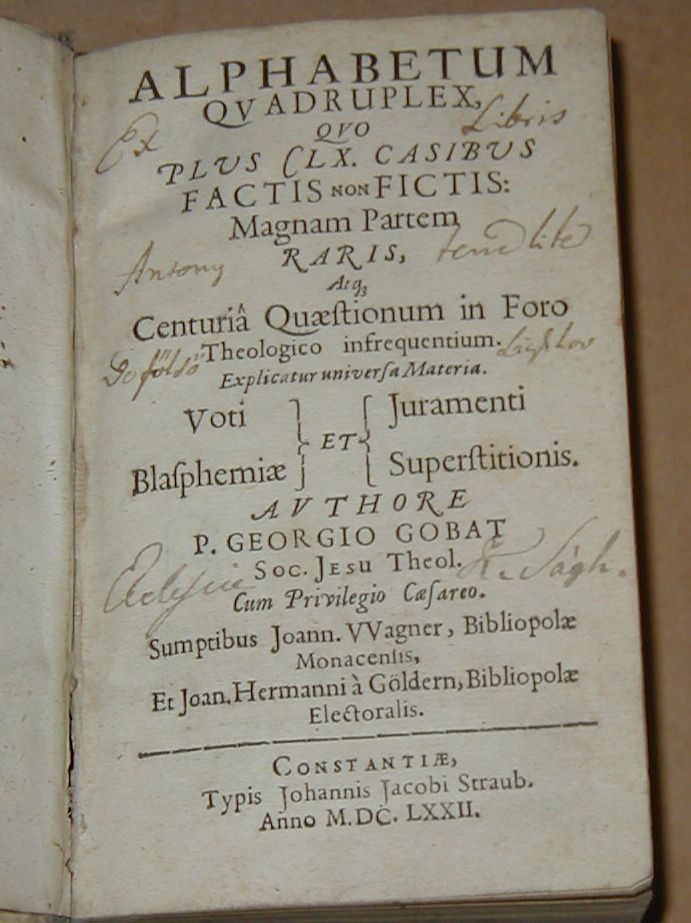 ALPHABETUM
QVADRUPLEX,
Ex Libris
QVO
PLUS CLX. CASIBUS
FACTIS NON FICTIS:
Magnam Partem
Antony
RARIS,
Atq₃
Centuriâ Quæſtionum in Foro
Theologico infrequentium.
Explicatur univerſa Materia.
Voti } ET { Juramenti
Blaſphemiæ Superſtitionis.
AVTHORE
P. GEORGIO GOBAT
Soc. JESU Theol.
Cum Privilegio Cæſareo.
Sumptibus Joann. VVagner, Bibliopolæ
Monacenſis,
Et Joan. Hermanni à Göldern, Bibliopolæ
Electoralis.
CONSTANTIÆ,
Typis Johannis Jacobi Straub.
Anno M.DC. LXXII.